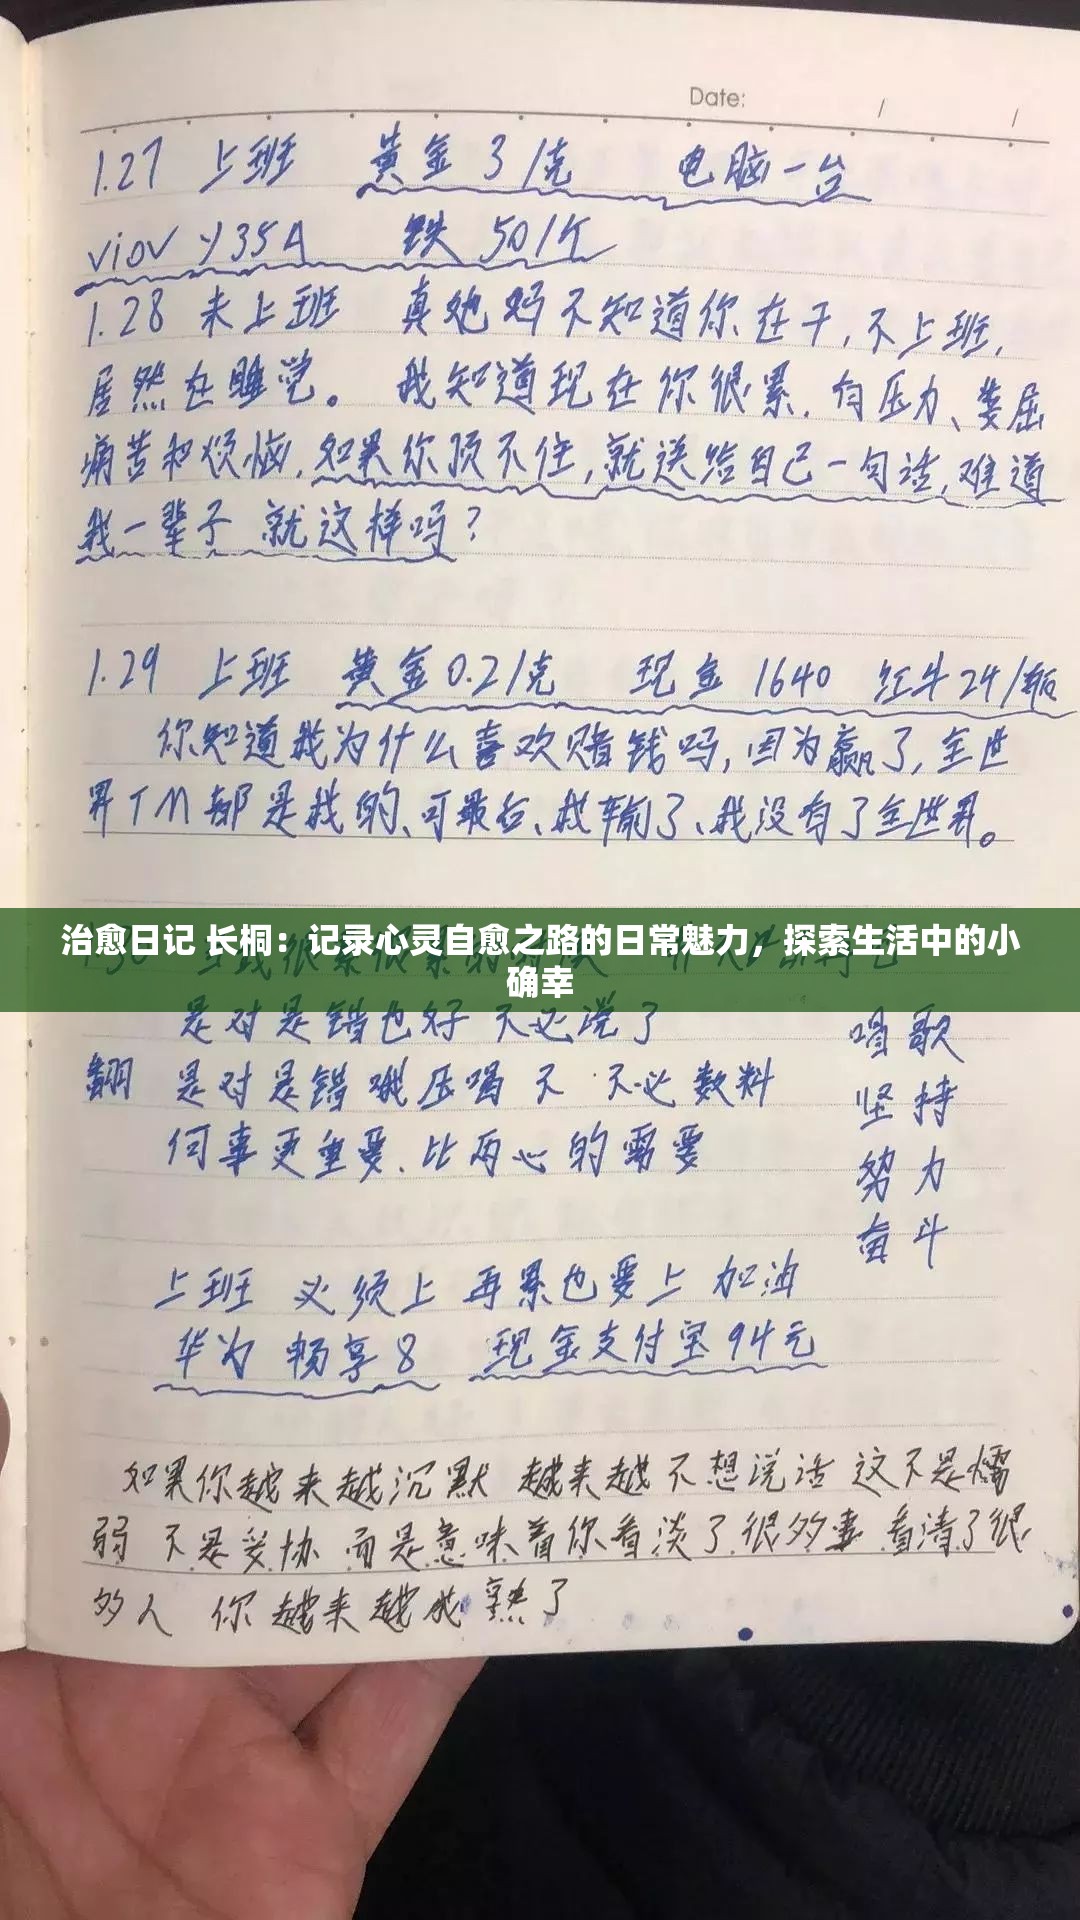 Date: / /
1.27 上班 黄金 3/克 电脑一台
viov y35A 铁 50/个
1.28 未上班 真他妈不知道你在干,不上班,
居然在睡觉。 我知道现在你很累,有压力、委屈
痛苦和烦恼,如果你顶不住,就送给自己一句话,难道
我一辈子 就这样吗?
1.29 上班 黄金0.2/克 现金1640 红牛24/瓶
你知道我为什么喜欢赌钱吗,因为赢了,全世
界TM都是我的、可最后、我输了、我没有了全世界。
治愈日记 长桐:记录心灵自愈之路的日常魅力,探索生活中的小
确幸
是对是错也好 不必说了 唱歌
翻 是对是错 不 不必 数料 坚持
何事更重要、比两心的需要 努力
奋斗
上班 必须上 再累也要上 加油
华为 畅享8 现金支付宝94元
如果你越来越沉默 越来越不想说话 这不是懦
弱 不是妥协 而是意味着你看淡了很多事 看清了很
多人 你越来越成熟了